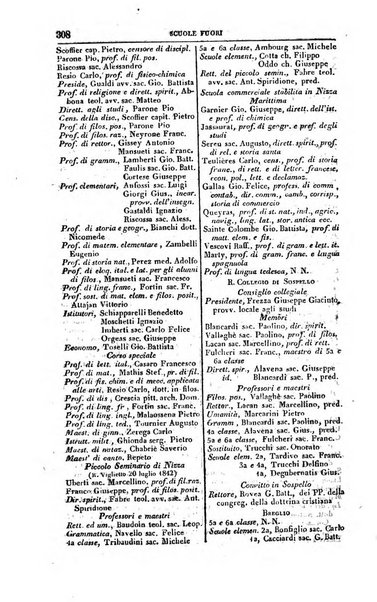 308 SCUOLE FUORI
Scoffier cap. Pietro, censore di discipl.
Parone Pio, prof. di fil. pos.
Riscossa sac. Alessandro
Resio Carlo, prof. di fisico-chimica
Preside, Gualdi avv. Giuseppe
Prof. di religione e dirett. spirit., Ab-
bona teol. avv. sac. Matteo
Dirett. agli studi, Parone Pio
Cens. della disc., Scoffier cap. Pietro
Prof. di filos. pos., Parone Pio
Prof. di filos. raz., Neyrone Franc.
Prof. di rettor., Gissey Antonio
Mansueti sac. Franc.
Prof. di gramm., Lamberti Gio. Batt.
Paulis sac. Gio. Batt.
Cortese Giuseppe
Prof. elementari, Anfossi sac. Luigi
Giorgi Gius., incar.
provv. dell'insegn.
Gastaldi Ignazio
Riscossa sac. Aless.
Prof. di storia e geogr., Bianchi dott.
Nicomede
Prof. di matem. elementare, Zambelli
Eugenio
Prof. di storia nat., Perez med. Adolfo
Prof. di eloq. ital. per gli alunni
di filos., Mansueti sac. Franc.
Prof. di ling. franc., Fortin sac. Fr.
Prof. sost. di mat. elem. e di filos. pos.
Attajan Vittorio
Istitutori, Schiapparelli Benedetto
Moschetti Ignazio
Imberti sac. Carlo Felice
Orgeas sac. Giuseppe
Economo, Toselli Gio. Battista
Corso speciale
Prof. di lett. ital., Casaro Francesco
Prof. di mat., Mathis Stef., pr. di fil.
Prof. di fis. chim. e di mecc. applicata
alle arti, Resio Carlo, dott. in filos.
Prof. di dis., Crescia pitt. arch. Dom.
Prof. di ling. fr., Fortin sac. Franc.
Prof. di ling. ingl., Malaussena Pietro
Prof. di ling. ted., Tournier Augusto
Maest. di ginn. Zerega Carlo
Istrutt. milit., Ghionda serg. Pietro
Maest. di nuoto, Chabrié Saverio
Maes. di canto, Repeto
Piccolo Seminario di Nizza
(R. Viglietto 20 luglio 1842)
Uberti sac. Marcellino, prof. di fil. raz.
Franco Giuseppe, prof. di filos. posit.
Dir. spirit., Fabre teol. avv. sac. Ant.
Spiridione
Professori e maestri
Rett. ed um., Baudoin teol. sac. Les.
Grammatica, Navello sac. Pietro
4a classe, Tribaudini sac. Michele
5a e 6a classe, Ambourg sac. Michele
Scuole element., Cotta sac. Francesco
Oddo ch. Giuseppe
Rett. del piccolo semin., Fabre teol.
avv. sac. Ant. Spiridione, pred.
Scuola commerciale stabilita in Nizza
Marittima
Garnier Gio. Giuseppe, dirett. dell'ist.
e prof. di chimica
Jassaurat, prof. di geogr. e pref. degli
studi
Serou sac. Augusto, dirett. spirit., prof.
di rel. e storia santa
Teulières Carlo, cens. degli studi, prof.
leon. pos. e declamaz.
Gallas Gio. Felice, profess. di comm,
contab., dir. di comm., corrisp.,
storia di commercio
Queyras, prof. di st. nat., ind., agric.,
navig., ling. lat., stor. antica ecc.
Sainte Colombe Gio. Battista, prof. di
matt. elem. e fis.
Vescovi Raff., prof. di gram. e lett. it.
Marty, prof. di gram. franc. e lingua
spagnuola
Prof. di lingua tedesca, N. N.
R. COLLEGIO DI SOSPELLO
Consiglio collegiale
Presidente, Frezza Giuseppe Giacinto
provv. locale agli studi
Membri
Blancardi sac. Paolino, dir. spirit.
Vallaghè sac. Paolino, prof. di fil.
Lacan sac. Marcellino, prof. di rett.
Fulcheri sac. Franc., maestro di 5a e
6a classe
Dirett. spir., Alavena sac. Giuseppe
id. Blancardi sac. P..
Professori e maestri
Filos. pos., Vallaghè sac. Carlo
Rettor., Lacan sac. Marcellino, pred.
Umanità, Marcarini Pietro
Gramm, Blancardi sac. Marcellino
4a classe, Alavena sac. Gius., pred.
5a e 6a classe, Fulcheri sac. Franc.
Sostituito, Truc sac. Onorato
Scuole elem. 2a, Tardivo sac. Ant.
3a e 4a, Trucchi Delfino
1a, Degubernatis Gius.
Convitto in Sospello
Rettore, Rovea G. Batt., dei PP. della
congreg. della dottrina cristiana
BREGLIO
5a e 6a classe, N. N.
Scuole elem. 2a, Bonfiglio sac. Carlo
4a, Cacciardi sac. G. Batt.